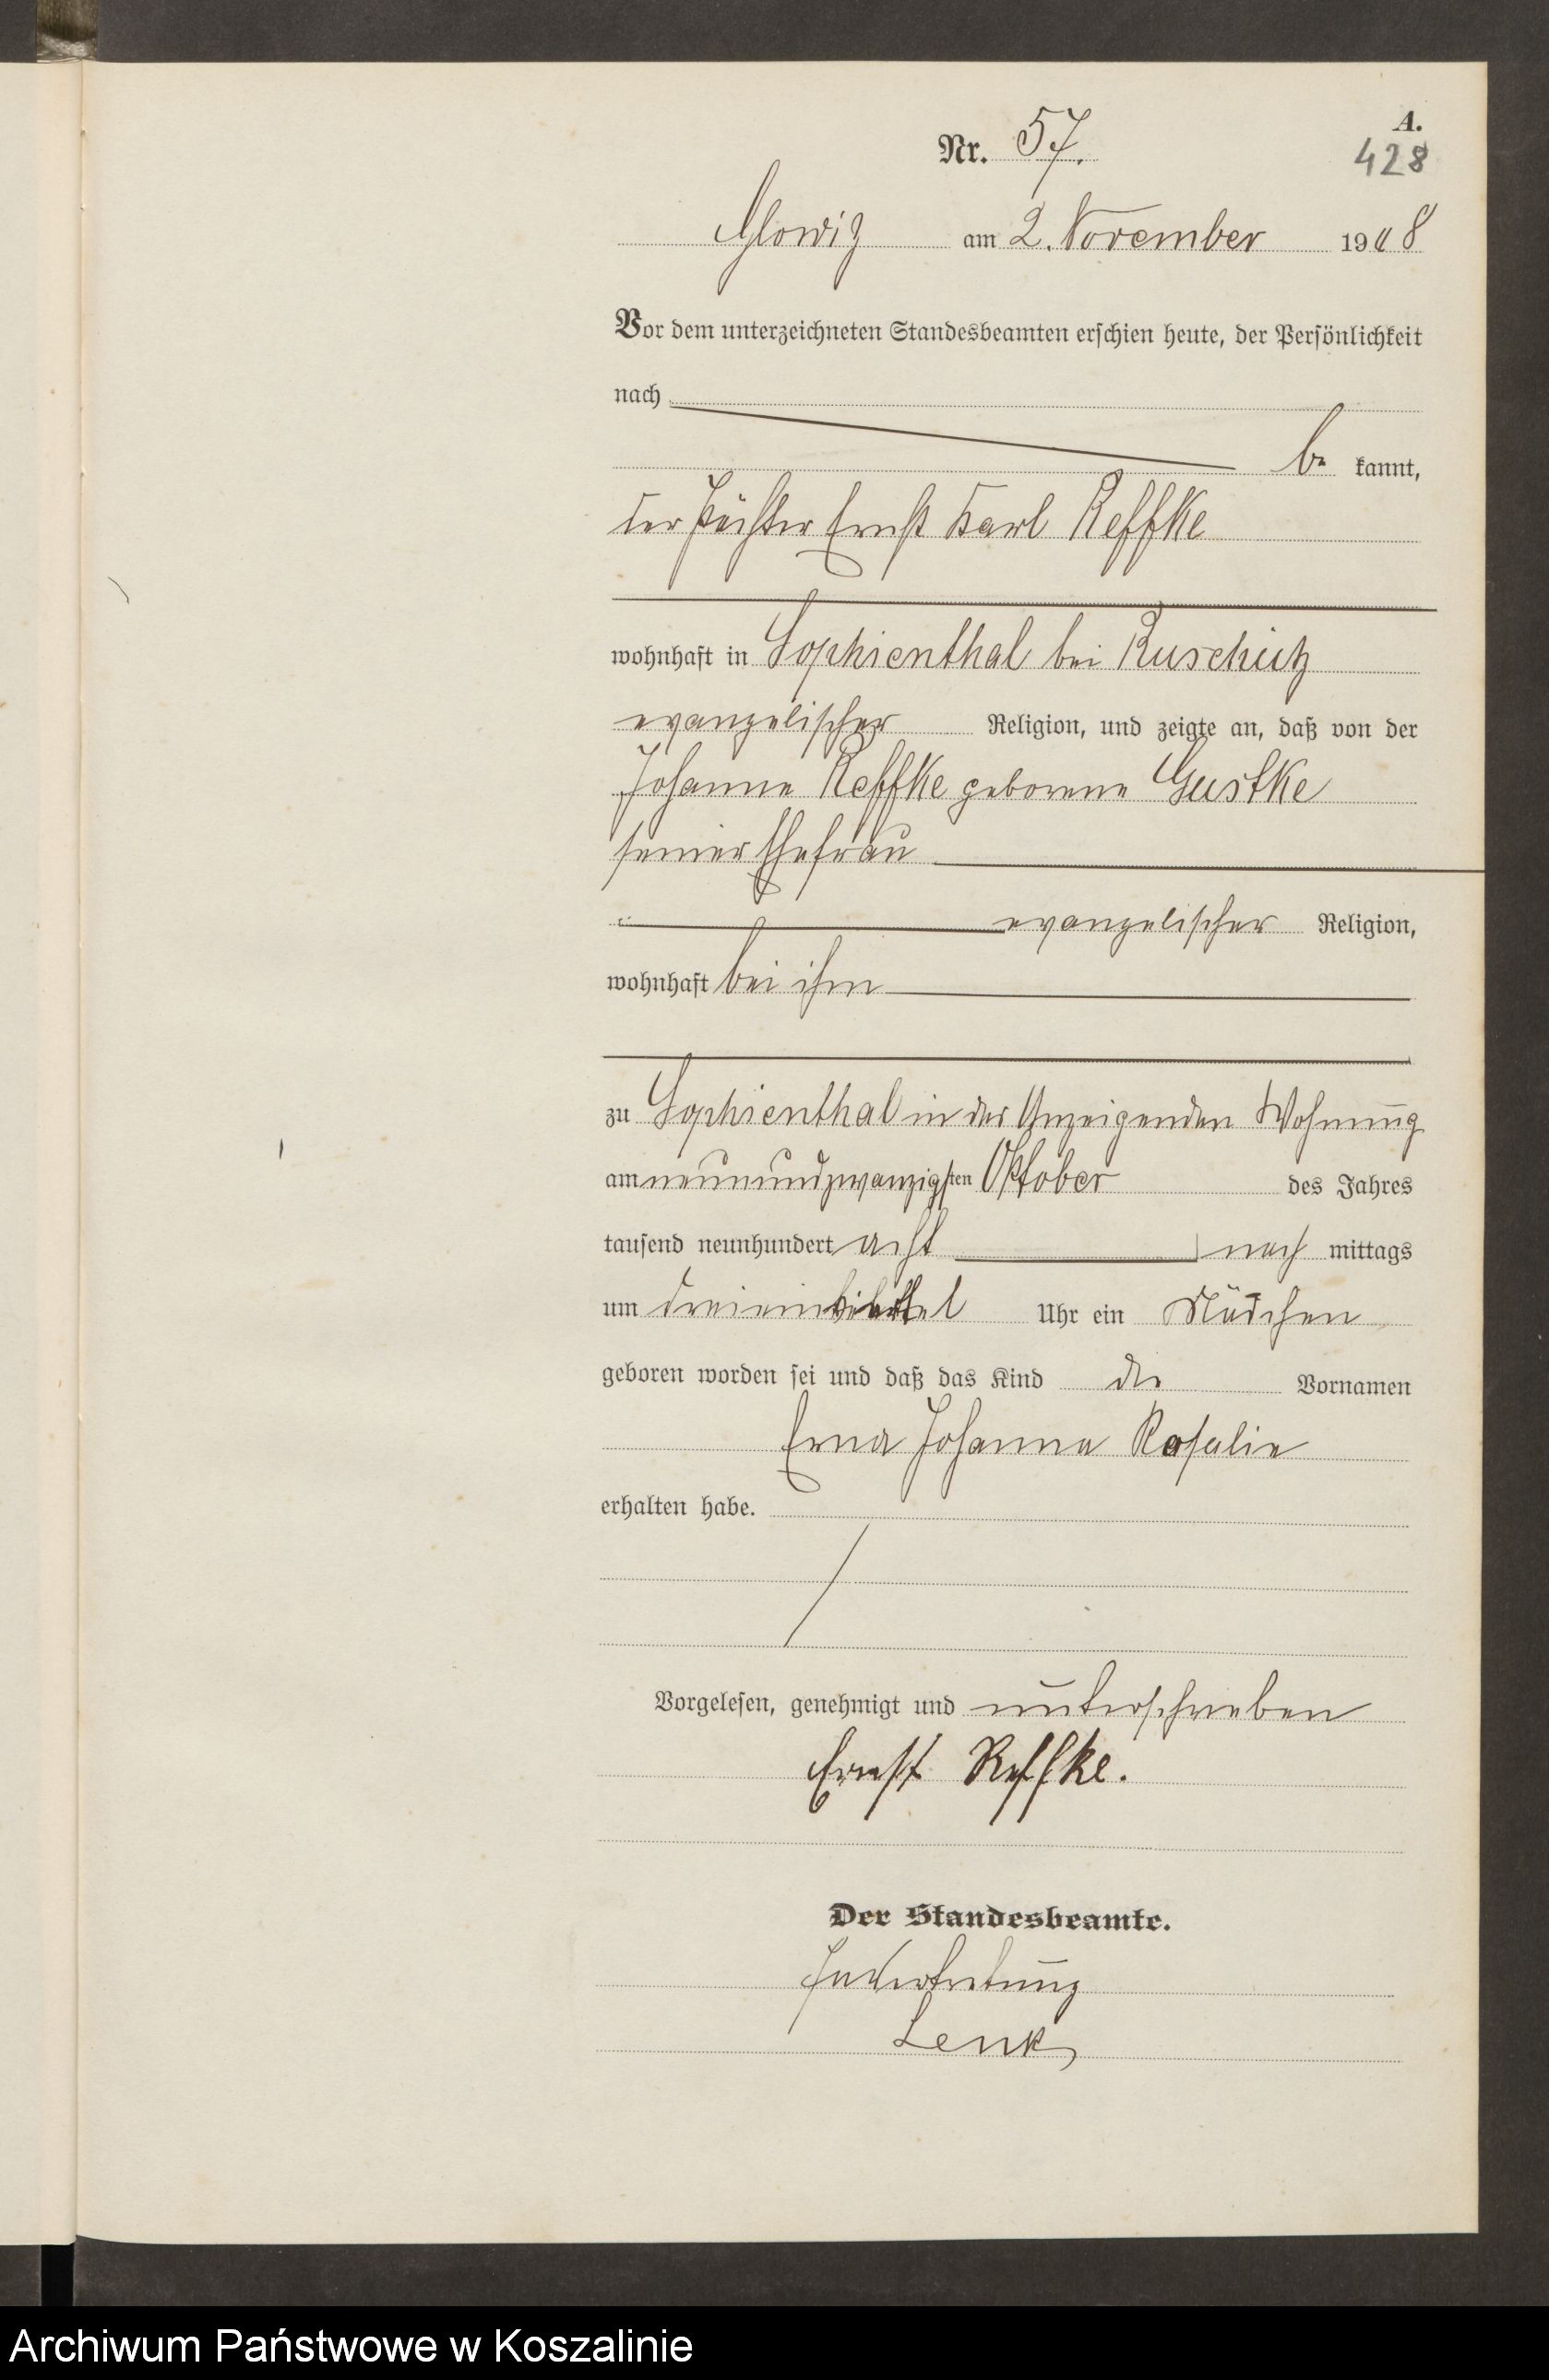 A.
Nr. 57.
428
Glowitz am 2. November 1908
Vor dem unterzeichneten Standesbeamten erschien heute, der Persönlichkeit
nach
be kannt,
der Pächter Ernst Karl Reffke
wohnhaft in Sophienthal bei Ruschütz
evangelischer Religion, und zeigte an, daß von der
Johanne Reffke geborene Gustke
seiner Ehefrau
evangelischer Religion,
wohnhaft bei ihm
zu Sophienthal in der Anzeigenden Wohnung
am neunundzwanzigsten Oktober des Jahres
tausend neunhundert acht nach mittags
um dreieinviertel Uhr ein Mädchen
geboren worden sei und daß das Kind die Vornamen
Erna Johanna Rosalie
erhalten habe.
Vorgelesen, genehmigt und unterschrieben
Ernst Reffke.
Der Standesbeamte.
In Vertretung
Lenk
Archiwum Państwowe w Koszalinie